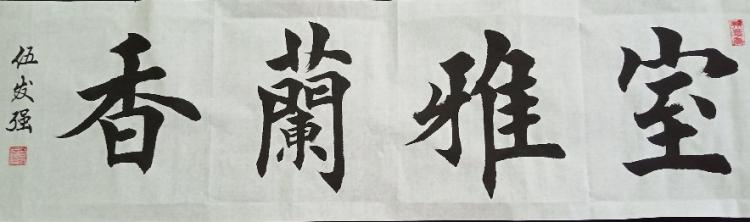 室雅蘭香
伍发强